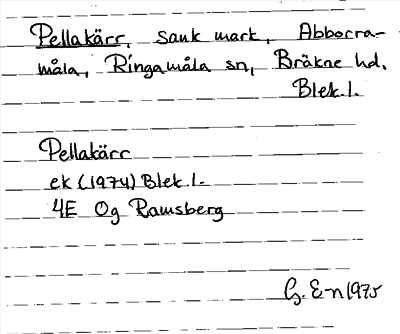 Pellakärr, sank mark, Abborra-
måla, Ringamåla sn, Bräkne hd,
Blek.l.
Pellakärr
ek (1974) Blek.l.
4E Og Ramsberg
G. E-n 1975